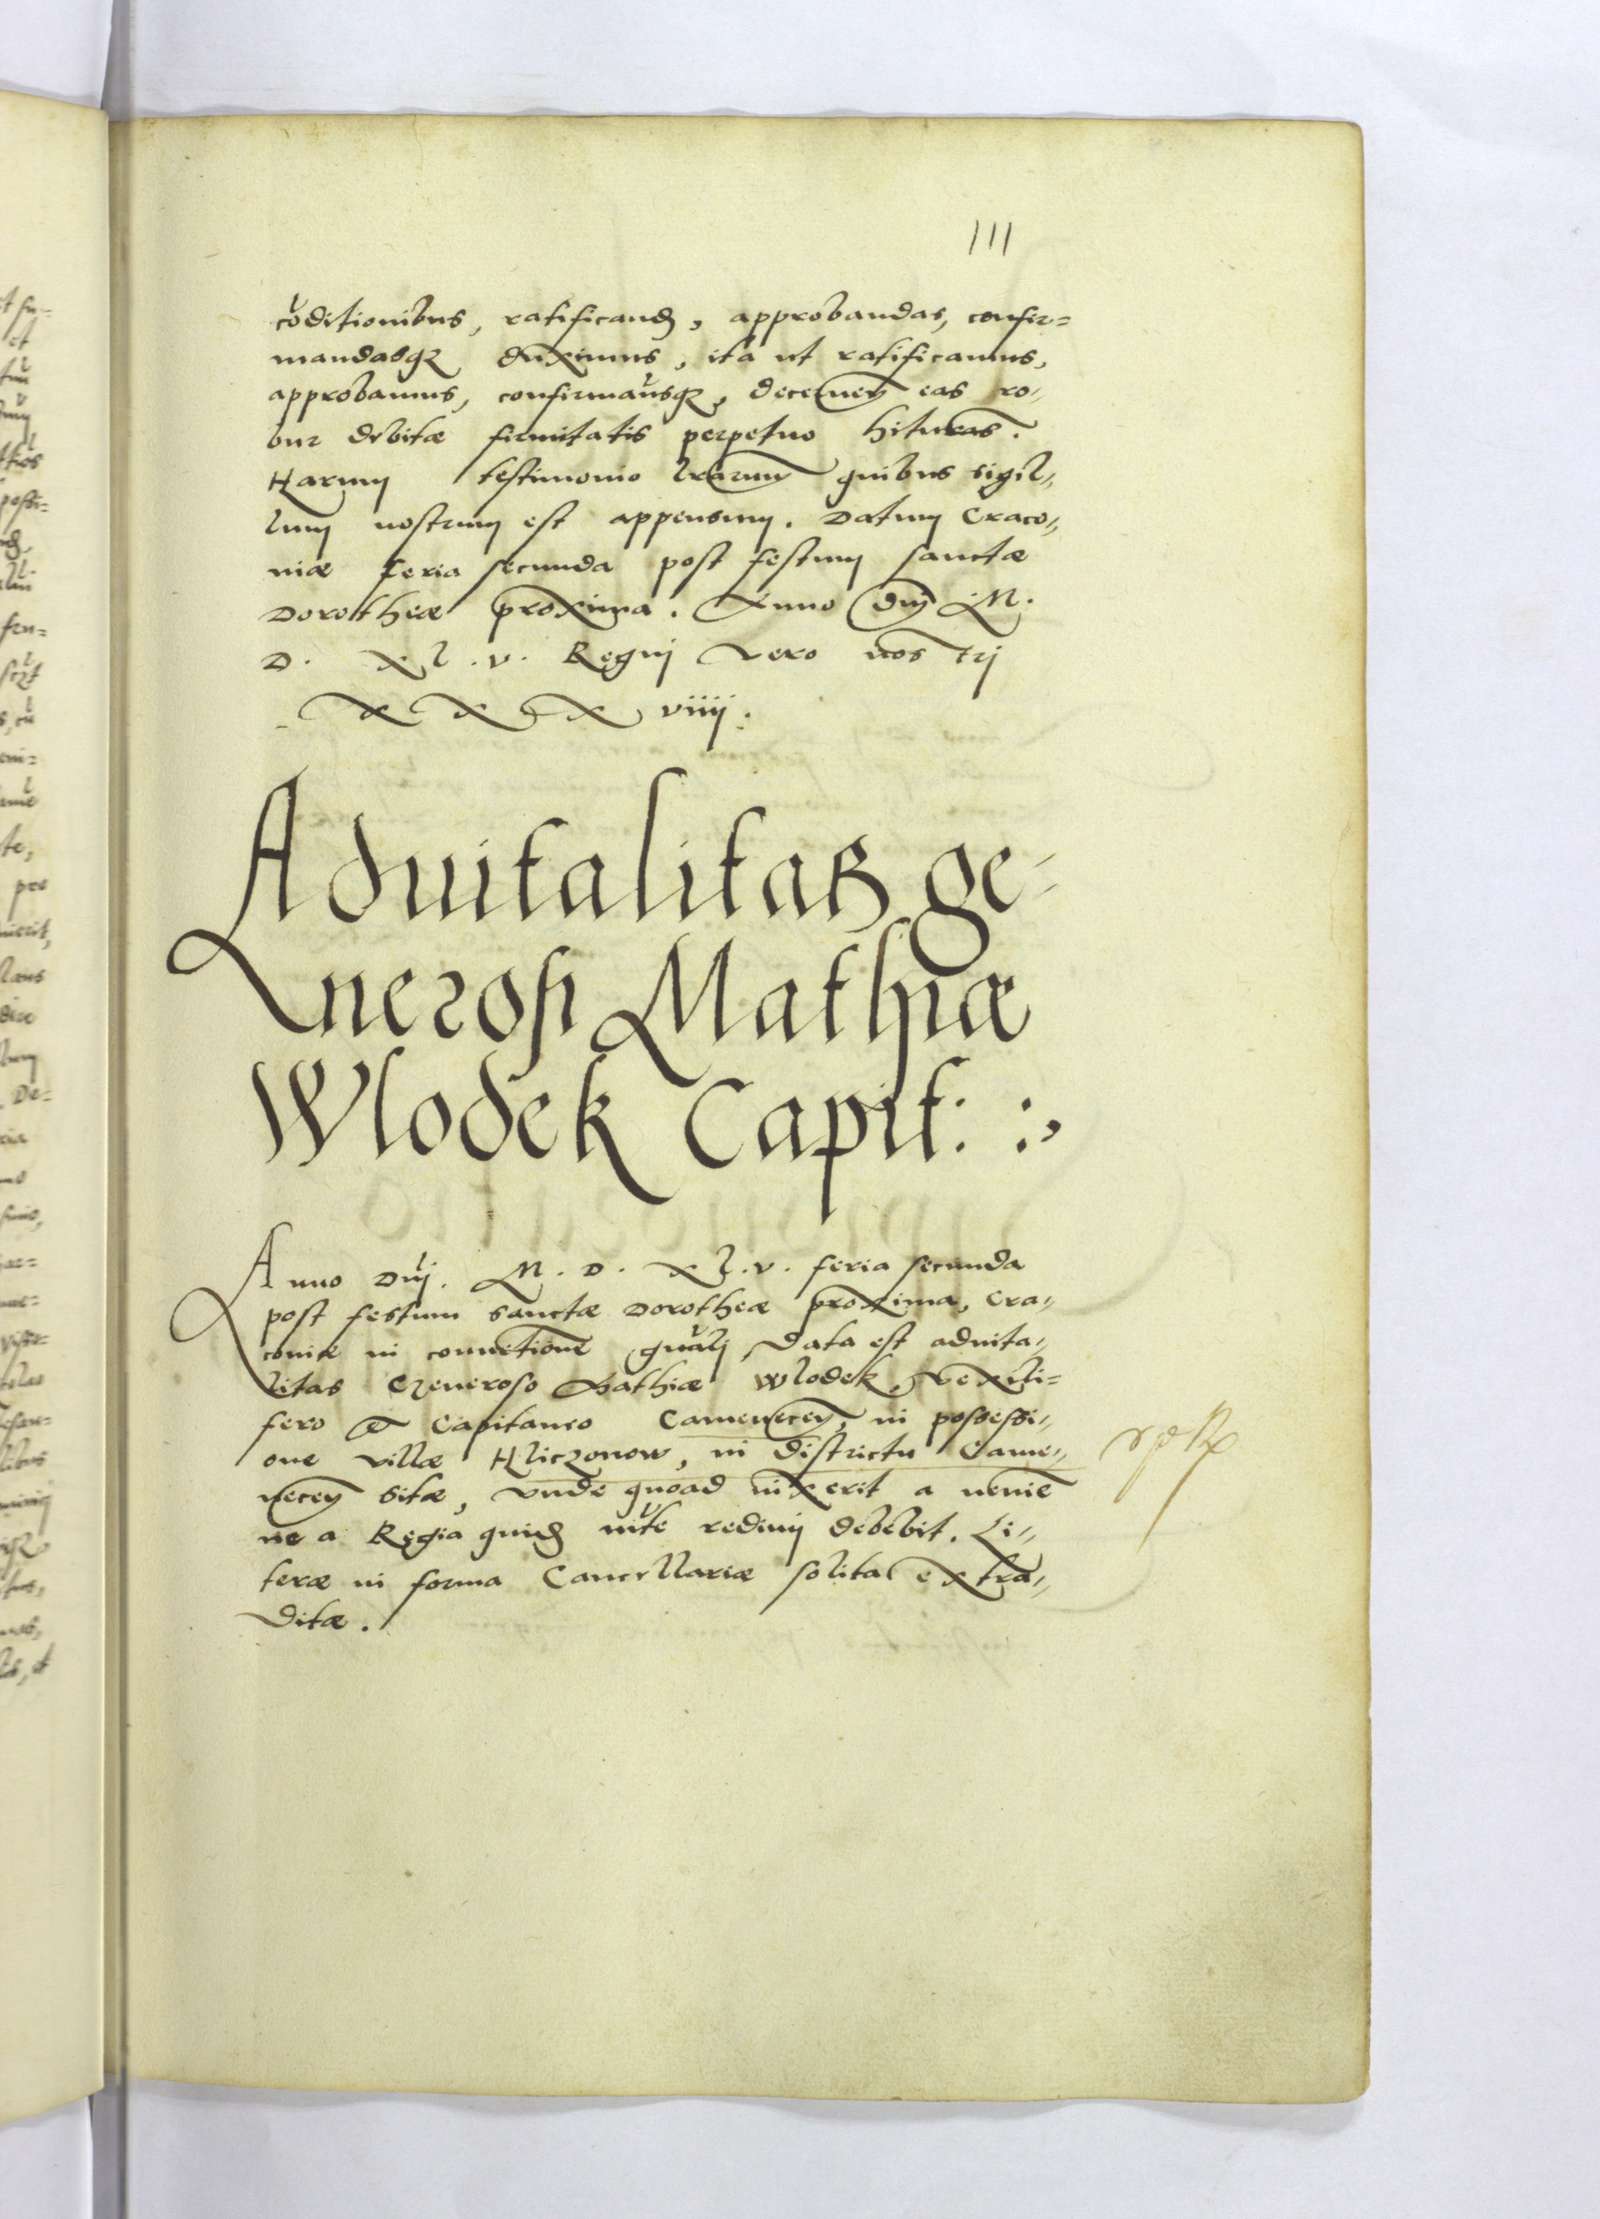 111
cōditionibus, ratificand, approbandas, confir=
mandasq3 duximus, ita ut ratificamus,
approbamus, confirmamusq3, decernen eas ro-
bur debitæ firmitatis perpetuo hituras.
Harum testimonio lrarum quibus sigil-
lum nostrum est appensum. Datum Craco-
niæ feria secunda post festum sanctæ
Dorotheæ proxima. Anno Dnj M.
D. Xl.v. Regni vero nostrj
XXX viiij.
Aduitalitas ge-
nerosi Mathiæ
Wlodek Capit: :,
Anno Dnj. M. D. Xl.v. feria secunda
post festum sanctæ Dorotheæ proxima, Cra-
coniæ in conuetione gnalj data est aduita-
litas Generoso Mathiæ Wlodek, Vexili=
fero et Capitaneo Camenecen, in possessi-
one villæ Hliczonow, in districtu Came-
necen sitæ, vnde quoad uixerit a nemine
ne a Regia quid mte redimj debebit. Li-
teræ in forma Cancellariæ solita extra-
ditæ.